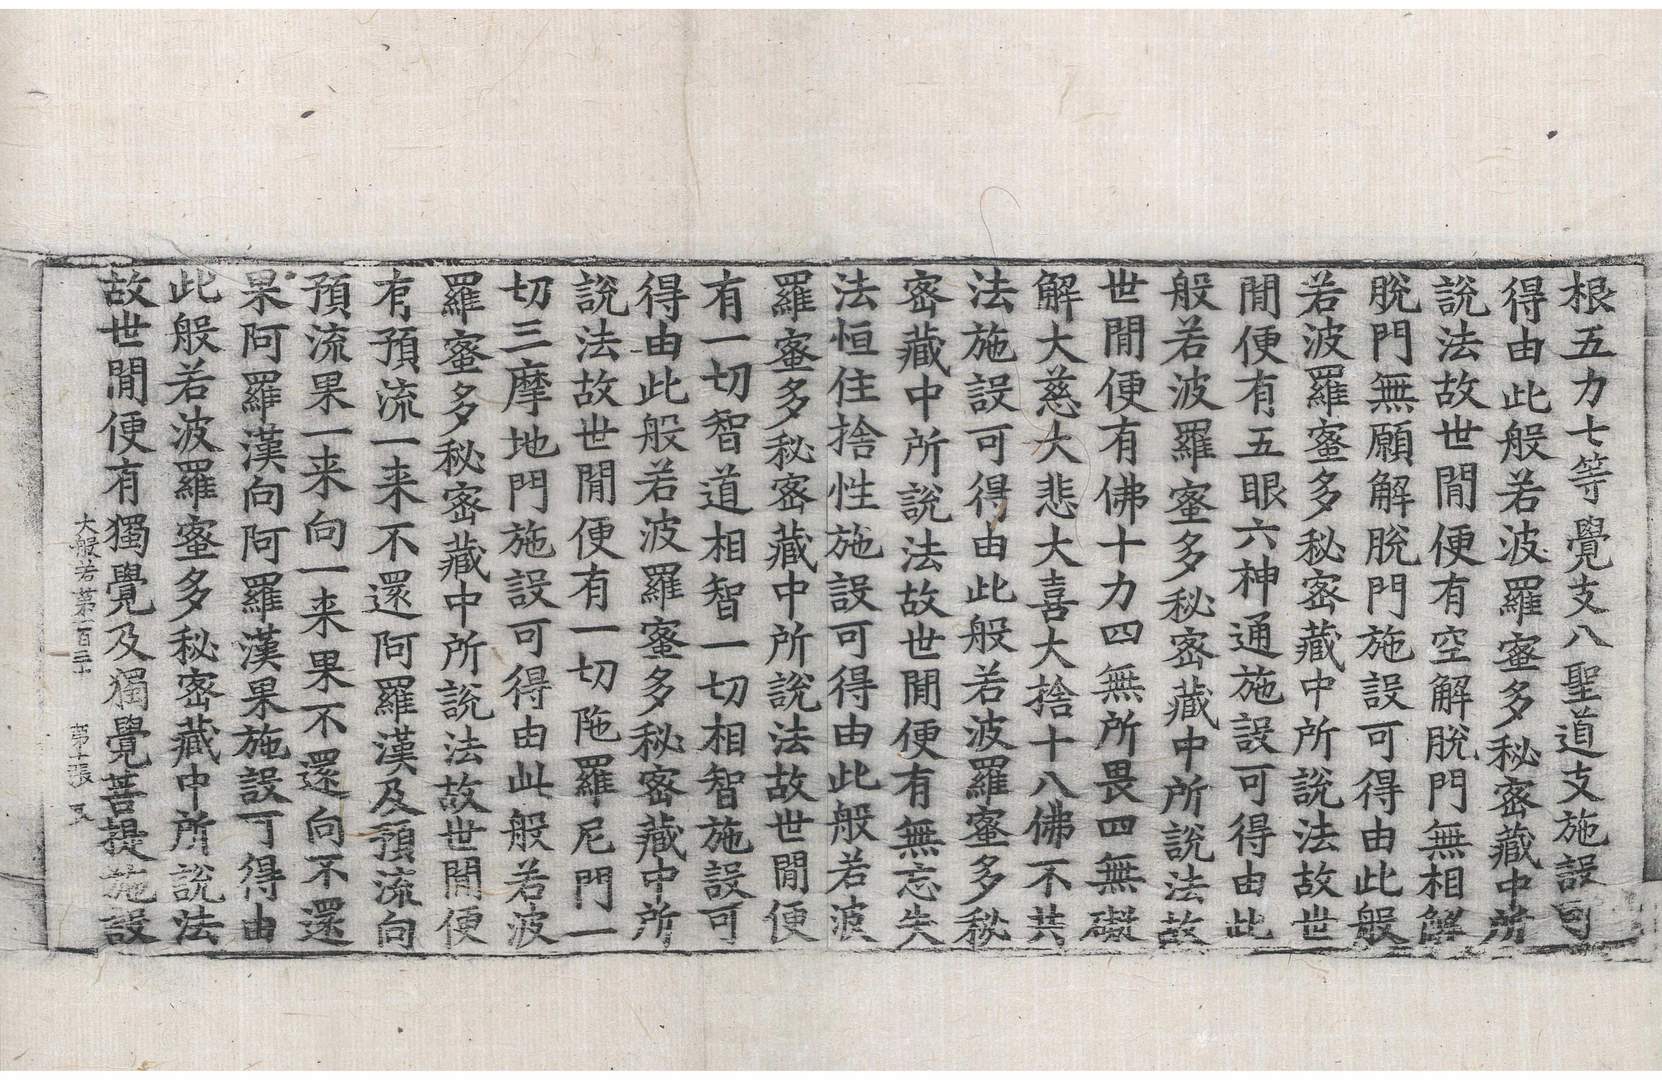 根五力七等覺支八聖道支施設可
得由此般若波羅蜜多秘密藏中所
說法故世閒便有空解脫門無相解
脫門無願解脫門施設可得由此般
若波羅蜜多秘密藏中所說法故世
閒便有五眼六神通施設可得由此
般若波羅蜜多秘密藏中所說法故
世閒便有佛十力四無所畏四無礙
解大慈大悲大喜大捨十八佛不共
法施設可得由此般若波羅蜜多秘
密藏中所說法故世閒便有無忘失
法恒住捨性施設可得由此般若波
羅蜜多秘密藏中所說法故世閒便
有一切智道相智一切相智施設可
得由此般若波羅蜜多秘密藏中所
說法故世閒便有一切陁羅尼門一
切三摩地門施設可得由此般若波
羅蜜多秘密藏中所說法故世閒便
有預流一来不還阿羅漢及預流向
預流果一来向一来果不還向不還
果阿羅漢向阿羅漢果施設可得由
此般若波羅蜜多秘密藏中所說法
故世閒便有獨覺及獨覺菩提施設
大般若第一百三十 第十張